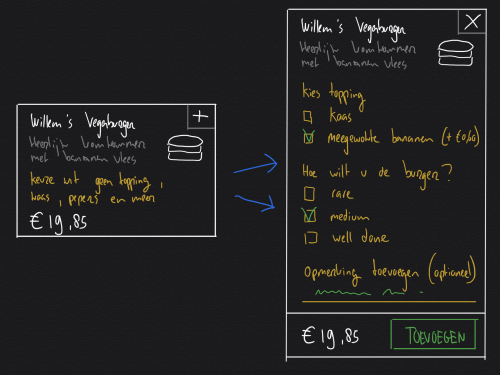 Willem's Vegaburger
+
Heerlijk komkommer
met bananen vlees
keuze uit geen topping,
kaas, pepers en meer
€ 19,85
Willem's Vegaburger
X
Heerlijk komkommer
met bananen vlees
kies topping
kaas
meegewokte bananen
Hoe wilt u de burger?
rare
medium
well done
Opmerking toevoegen (optioneel)
€ 19,85
TOEVOEGEN